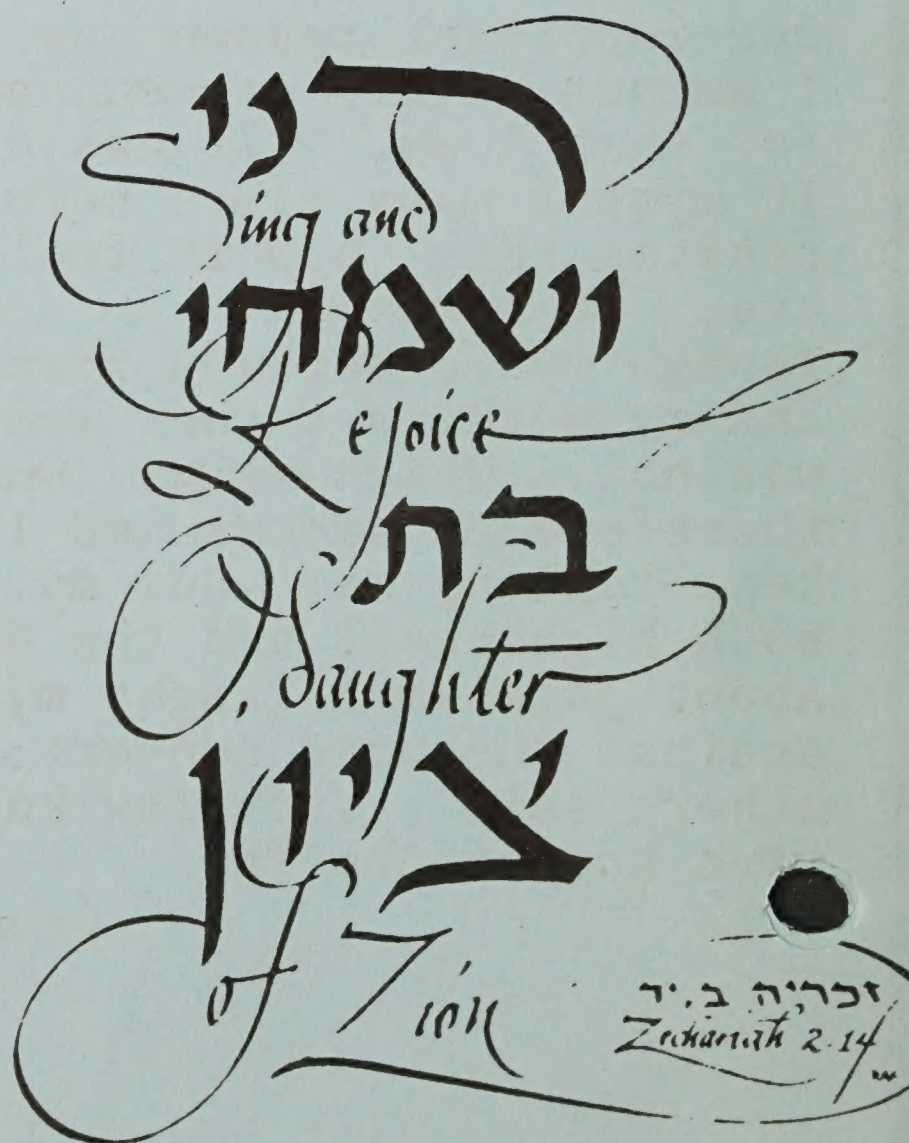 רני
Sing and
ושמחי
Rejoice
בת
O, daughter
ציון
of Zion
זכריה ב.יד
Zechariah 2.14